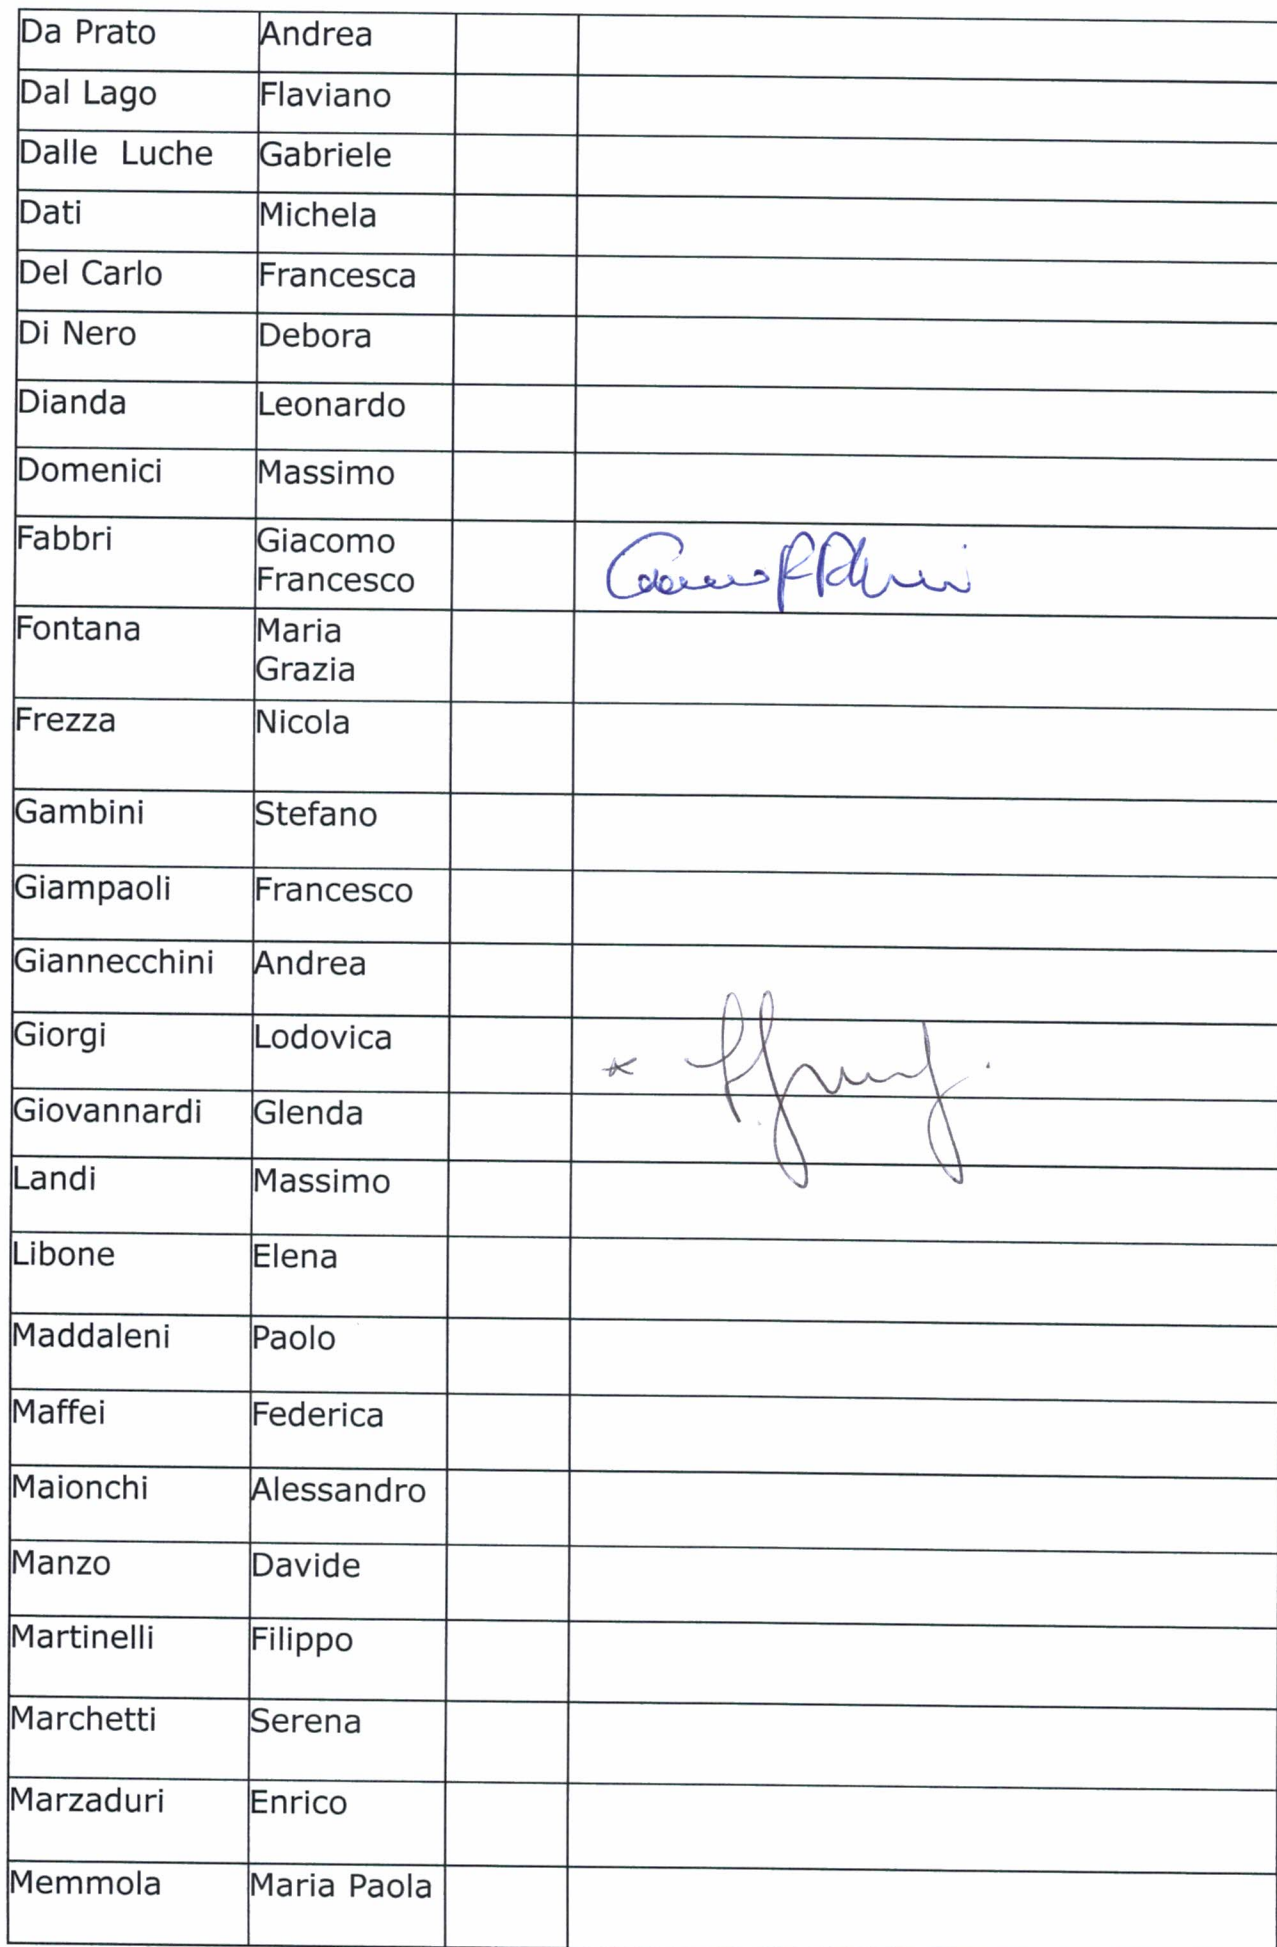 Da Prato Andrea
Dal Lago Flaviano
Dalle Luche Gabriele
Dati Michela
Del Carlo Francesca
Di Nero Debora
Dianda Leonardo
Domenici Massimo
Fabbri Giacomo
Francesco
Fontana Maria
Grazia
Frezza Nicola
Gambini Stefano
Giampaoli Francesco
Giannecchini Andrea
Giorgi Lodovica
Giovannardi Glenda
Landi Massimo
Libone Elena
Maddaleni Paolo
Maffei Federica
Maionchi Alessandro
Manzo Davide
Martinelli Filippo
Marchetti Serena
Marzaduri Enrico
Memmola Maria Paola